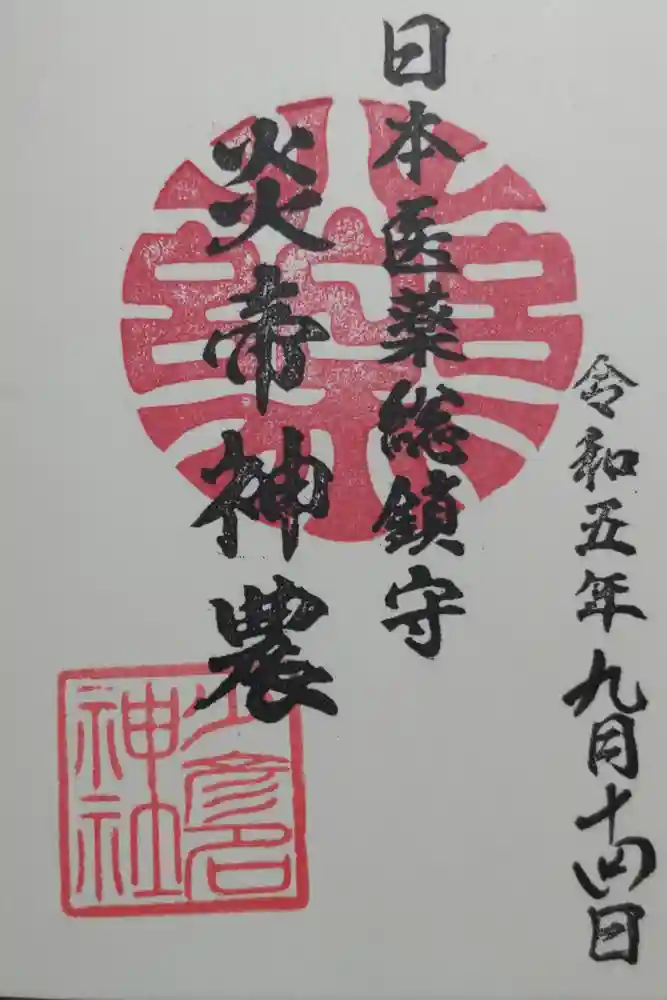 令和五年九月十四日
日本医薬総鎮守
炎帝神農
少彦名
神社